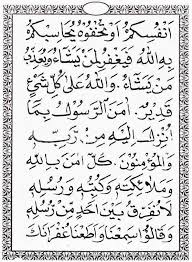 اَنْفُسِكُمْ اَوْ تُخْفُوْهُ يُحَاسِبْكُمْ
بِهِ اللّٰهُ فَيَغْفِرُ لِمَنْ يَّشَآءُ وَيُعَذِّبُ
مَنْ يَّشَآءُ وَاللّٰهُ عَلٰى كُلِّ شَيْءٍ
قَدِيْرٌ اٰمَنَ الرَّسُوْلُ بِمَا
اُنْزِلَ اِلَيْهِ مِنْ رَّبِّهٖ
وَالْمُؤْمِنُوْنَ كُلٌّ اٰمَنَ بِاللّٰهِ
وَمَلٰٓئِكَتِهٖ وَكُتُبِهٖ وَرُسُلِهٖ
لَا نُفَرِّقُ بَيْنَ اَحَدٍ مِّنْ رُّسُلِهٖ
وَقَالُوْا سَمِعْنَا وَاَطَعْنَا غُفْرَانَكَ